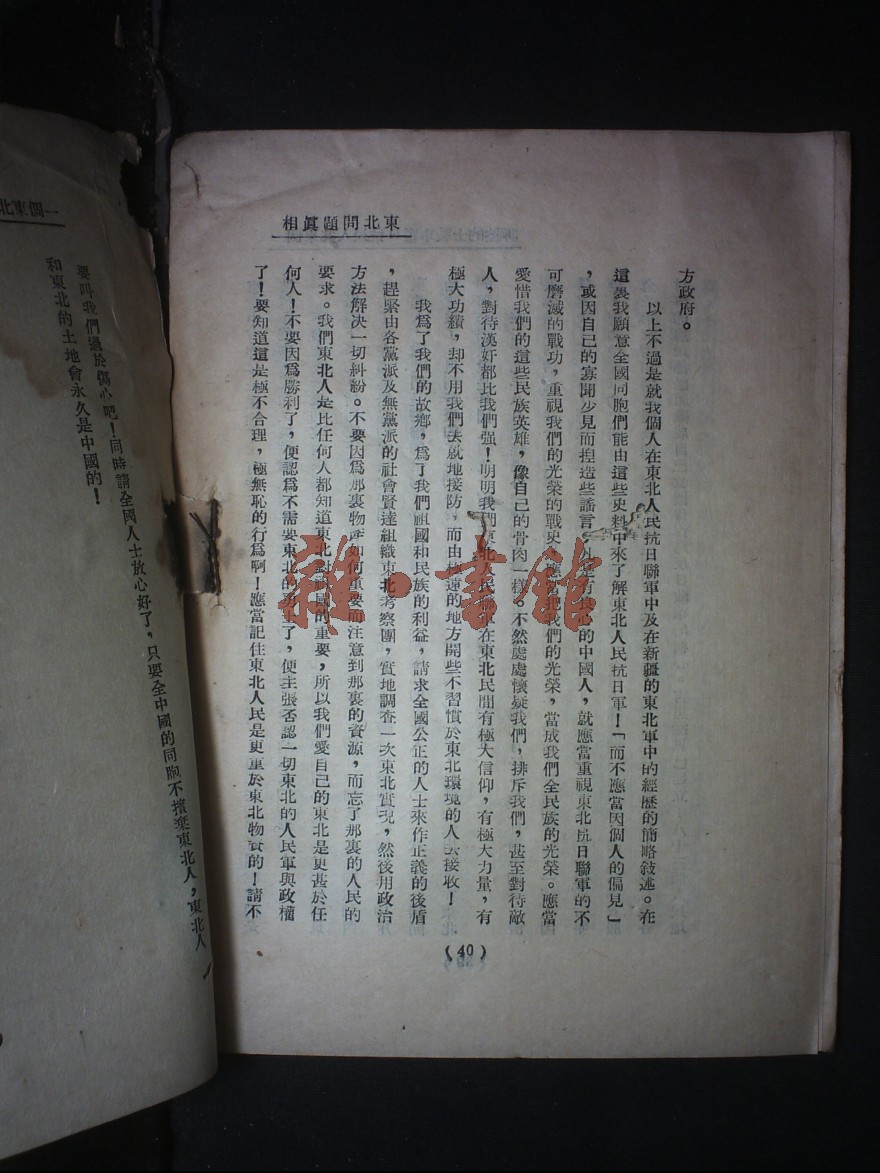 東北問題眞相
方政府。
以上不過是就我個人在東北人民抗日聯軍中及在新疆的東北軍中的經歷的簡略敍述。在
這裏我願意全國同胞們能由這些史料中來了解東北人民抗日軍！「而不應當因個人的偏見」
，或因自己的寡聞少見而揑造些謠言。凡是有良心的中國人，就應當重視東北抗日聯軍的不
可磨滅的戰功，重視我們的光榮的戰史，應當把我們的光榮，當成我們全民族的光榮。應當
愛惜我們的這些民族英雄，像自己的骨肉一樣。不然處處懷疑我們，排斥我們，甚至對待敵
人，對待漢奸都比我們强！明明我們東北人民聯軍在東北民間有極大信仰，有極大力量，有
極大功績，却不用我們去就地接防，而由極遠的地方開些不習慣於東北環境的人去接收！
我爲了我們的故鄉，爲了我們祖國和民族的利益，請求全國公正的人士來作正義的後盾
，趕緊由各黨派及無黨派的社會賢達組織東北考察團，實地調查一次東北實現，然後用政治
方法解決一切糾紛。不要因爲那裏物產如何重要而注意到那裏的資源，而忘了那裏的人民的
要求。我們東北人是比任何人都知道東北對祖國的重要，所以我們愛自己的東北是更甚於任
何人！不要因爲勝利了，便認爲不需要東北的勇士了，便主張否認一切東北的人民軍與政權
了！要知道這是極不合理，極無恥的行爲啊！應當記住東北人民是更重於東北物資的！請不
(40)
一個東北
要叫我們過於傷心吧！同時請全國人士放心好了，只要全中國的同胞不擯棄東北人，東北人
和東北的土地會永久是中國的！
雜·書館